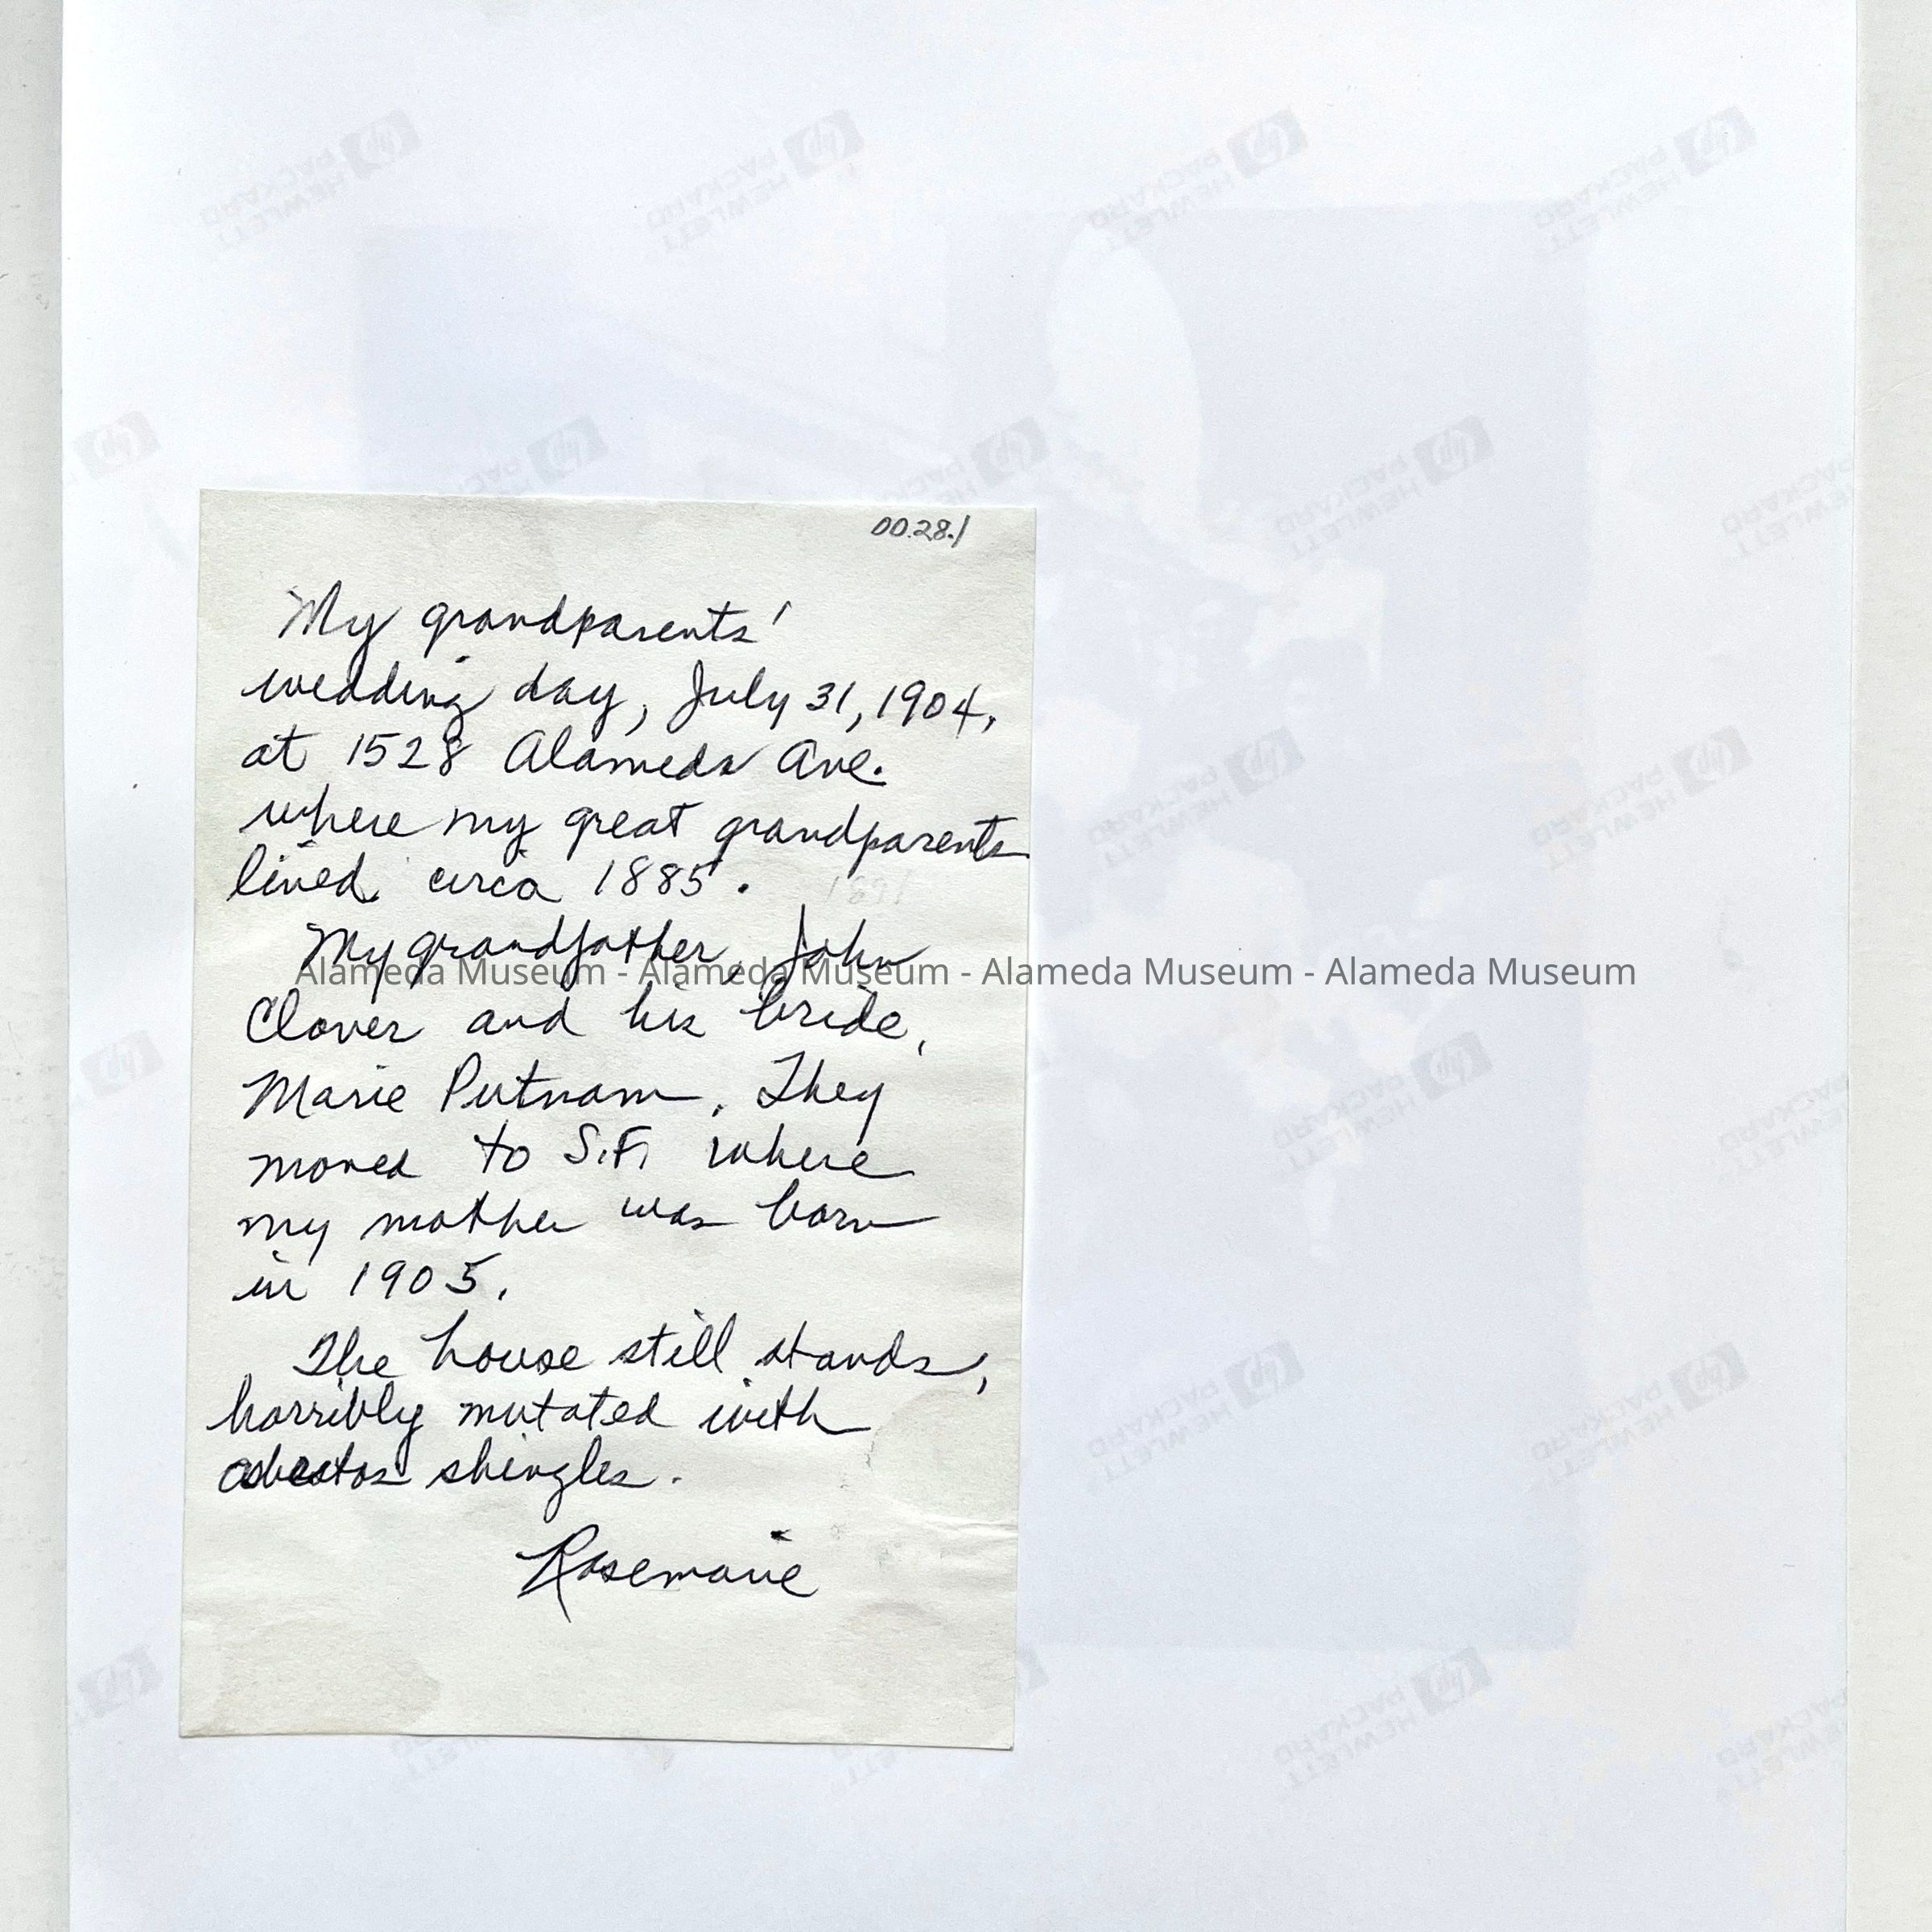 00.28.1
My grandparents'
wedding day, July 31, 1904,
at 1528 Alameda Ave.
where my great grandparents
lived circa 1885.
My grandfather, John
Clover and his bride,
Marie Putnam. They
moved to S.F. where
my mother was born
in 1905.
The house still stands,
horribly mutated with
asbestos shingles.
Rosemarie
Alameda Museum - Alameda Museum - Alameda Museum - Alameda Museum
HEWLETT
PACKARD
hp